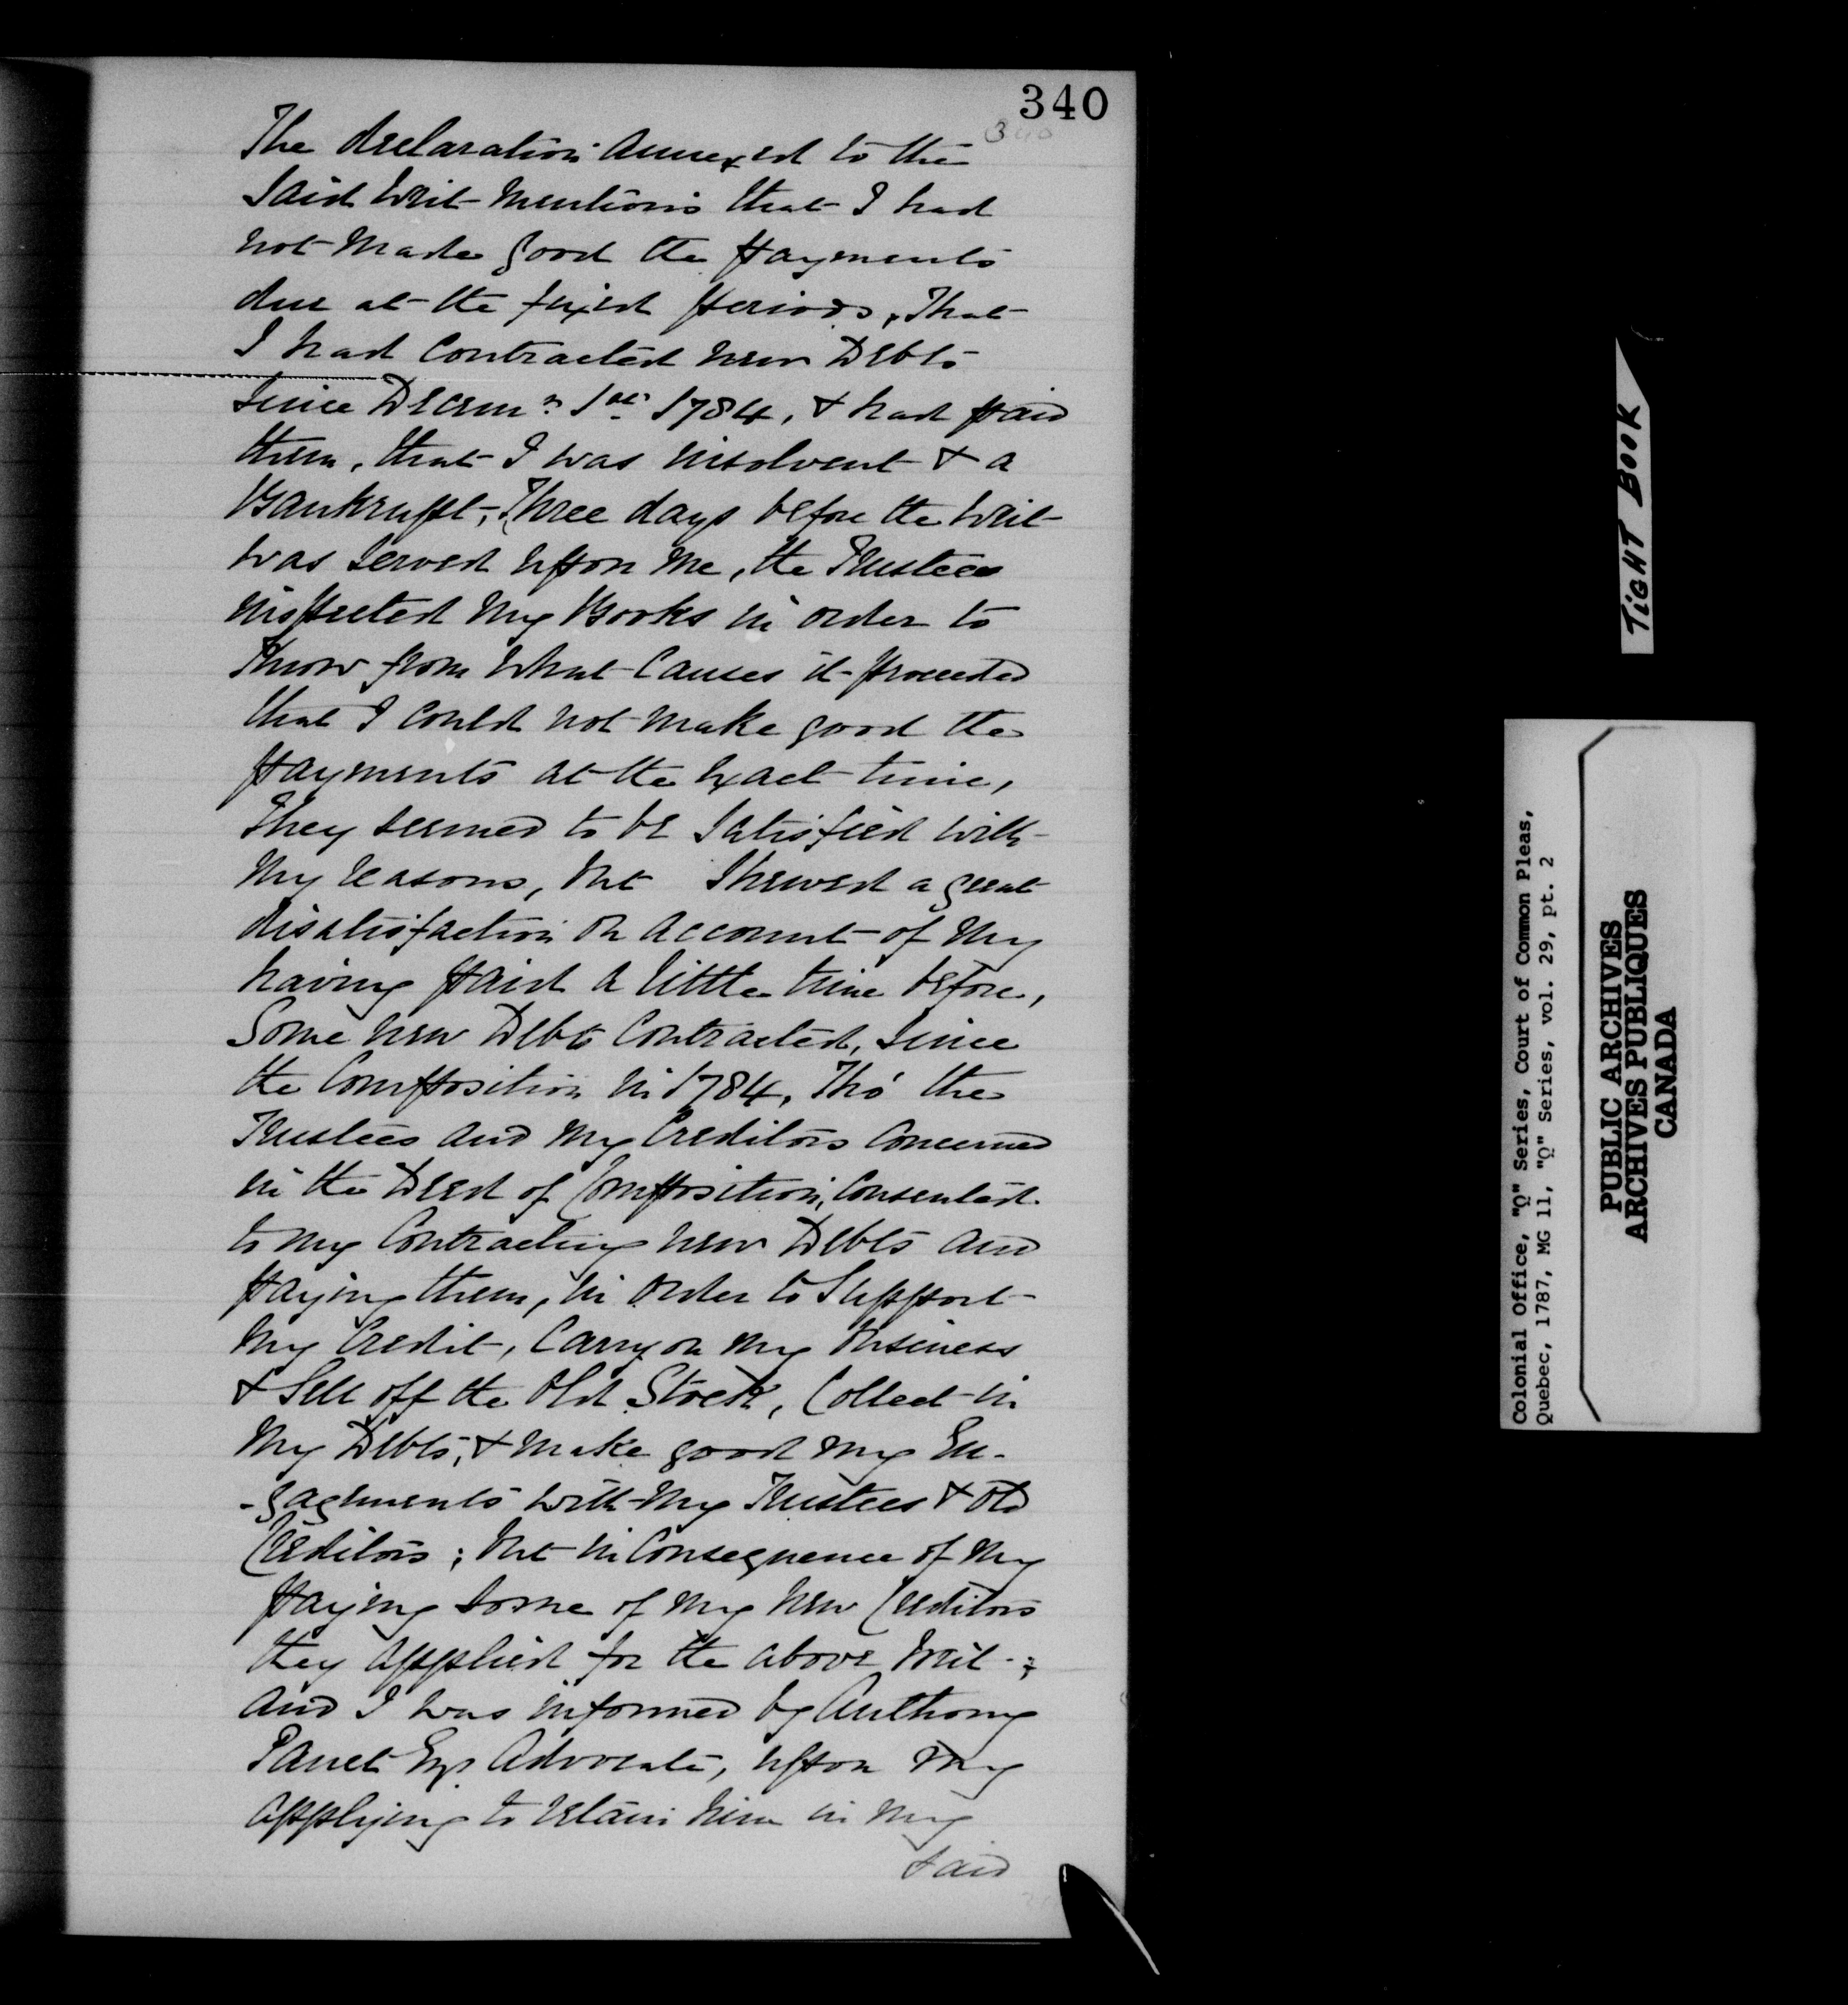 340
340
The declaration annexed to the
said Writ mentions that I had
not made good the payments
due at the fixed periods, That
I had contracted new Debts
since Decemr. 1st 1784, & had paid
them, that I was insolvent & a
Bankrupt, Three days before the Writ
was served upon me, the Trustees
inspected my Books in order to
know from what Causes it proceeded
that I could not make good the
payments at the exact time,
They seemed to be satisfied with
my reasons, but shewed a great
disatisfaction on account of my
having paid a little time before,
Some new Debts Contracted, since
the Composition in 1784, Tho' the
Trustees and my Creditors Concerned
in the Deed of Composition, Consented
to my Contracting new Debts and
paying them, in order to Support
my Credit, Carry on my business
& Sell off the Old Stock, Collect in
my Debts, & make good my En-
-gagements with my Trustees & Old
Creditors; but in Consequence of my
paying some of my new Creditors
they applied for the above Writ;
and I was informed by Anthony
Panet Esqr. Advocate, upon my
applying to retain him in my
said
TIGHT BOOK
Colonial Office, "Q" Series, Court of Common Pleas,
Quebec, 1787, MG 11, "Q" Series, vol. 29, pt. 2
PUBLIC ARCHIVES
ARCHIVES PUBLIQUES
CANADA